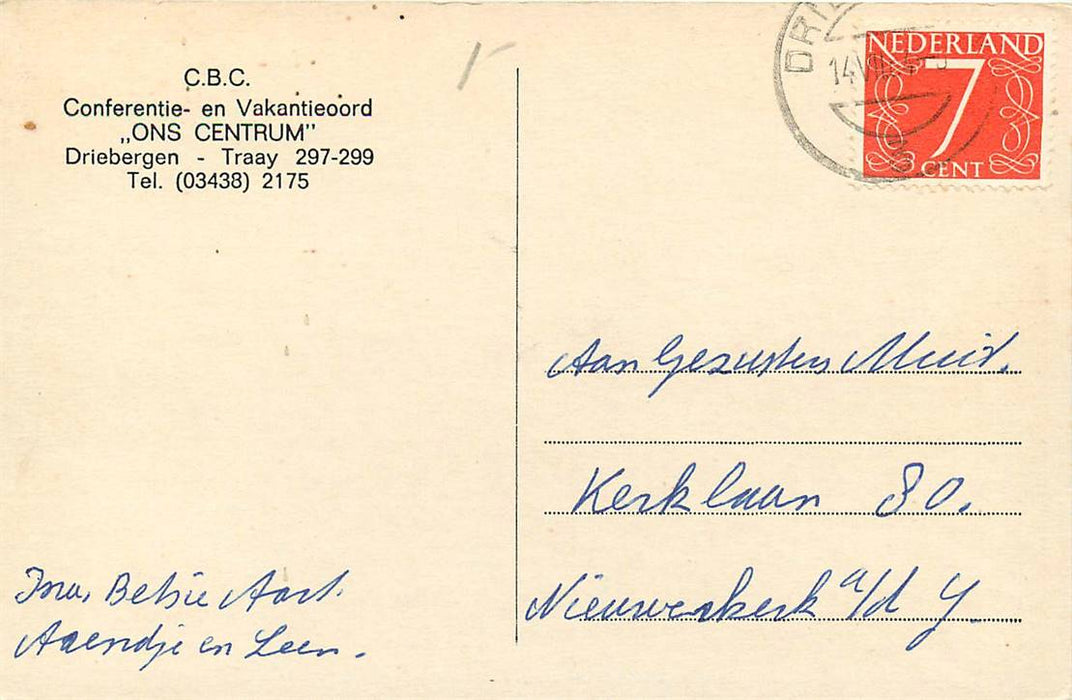 C.B.C.
Conferentie- en Vakantieoord
„ONS CENTRUM”
Driebergen - Traay 297-299
Tel. (03438) 2175
NEDERLAND
7
CENT
Aan Gezusters Muit.
Kerklaan 80.
Nieuwerkerk a/d Y.
Ina, Betsie Aart.
Arendje en Leen.